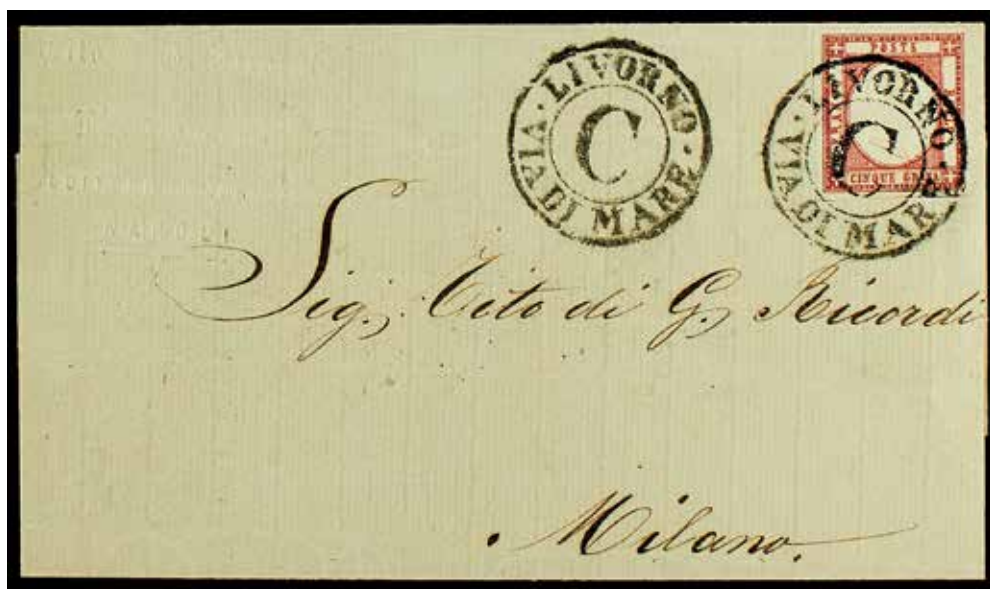 LIVORNO · VIA DI MARE ·
C
POSTA
LIVORNO · VIA DI MARE
C
CINQUE GRANA
Sig. Tito di G. Ricordi
Milano.